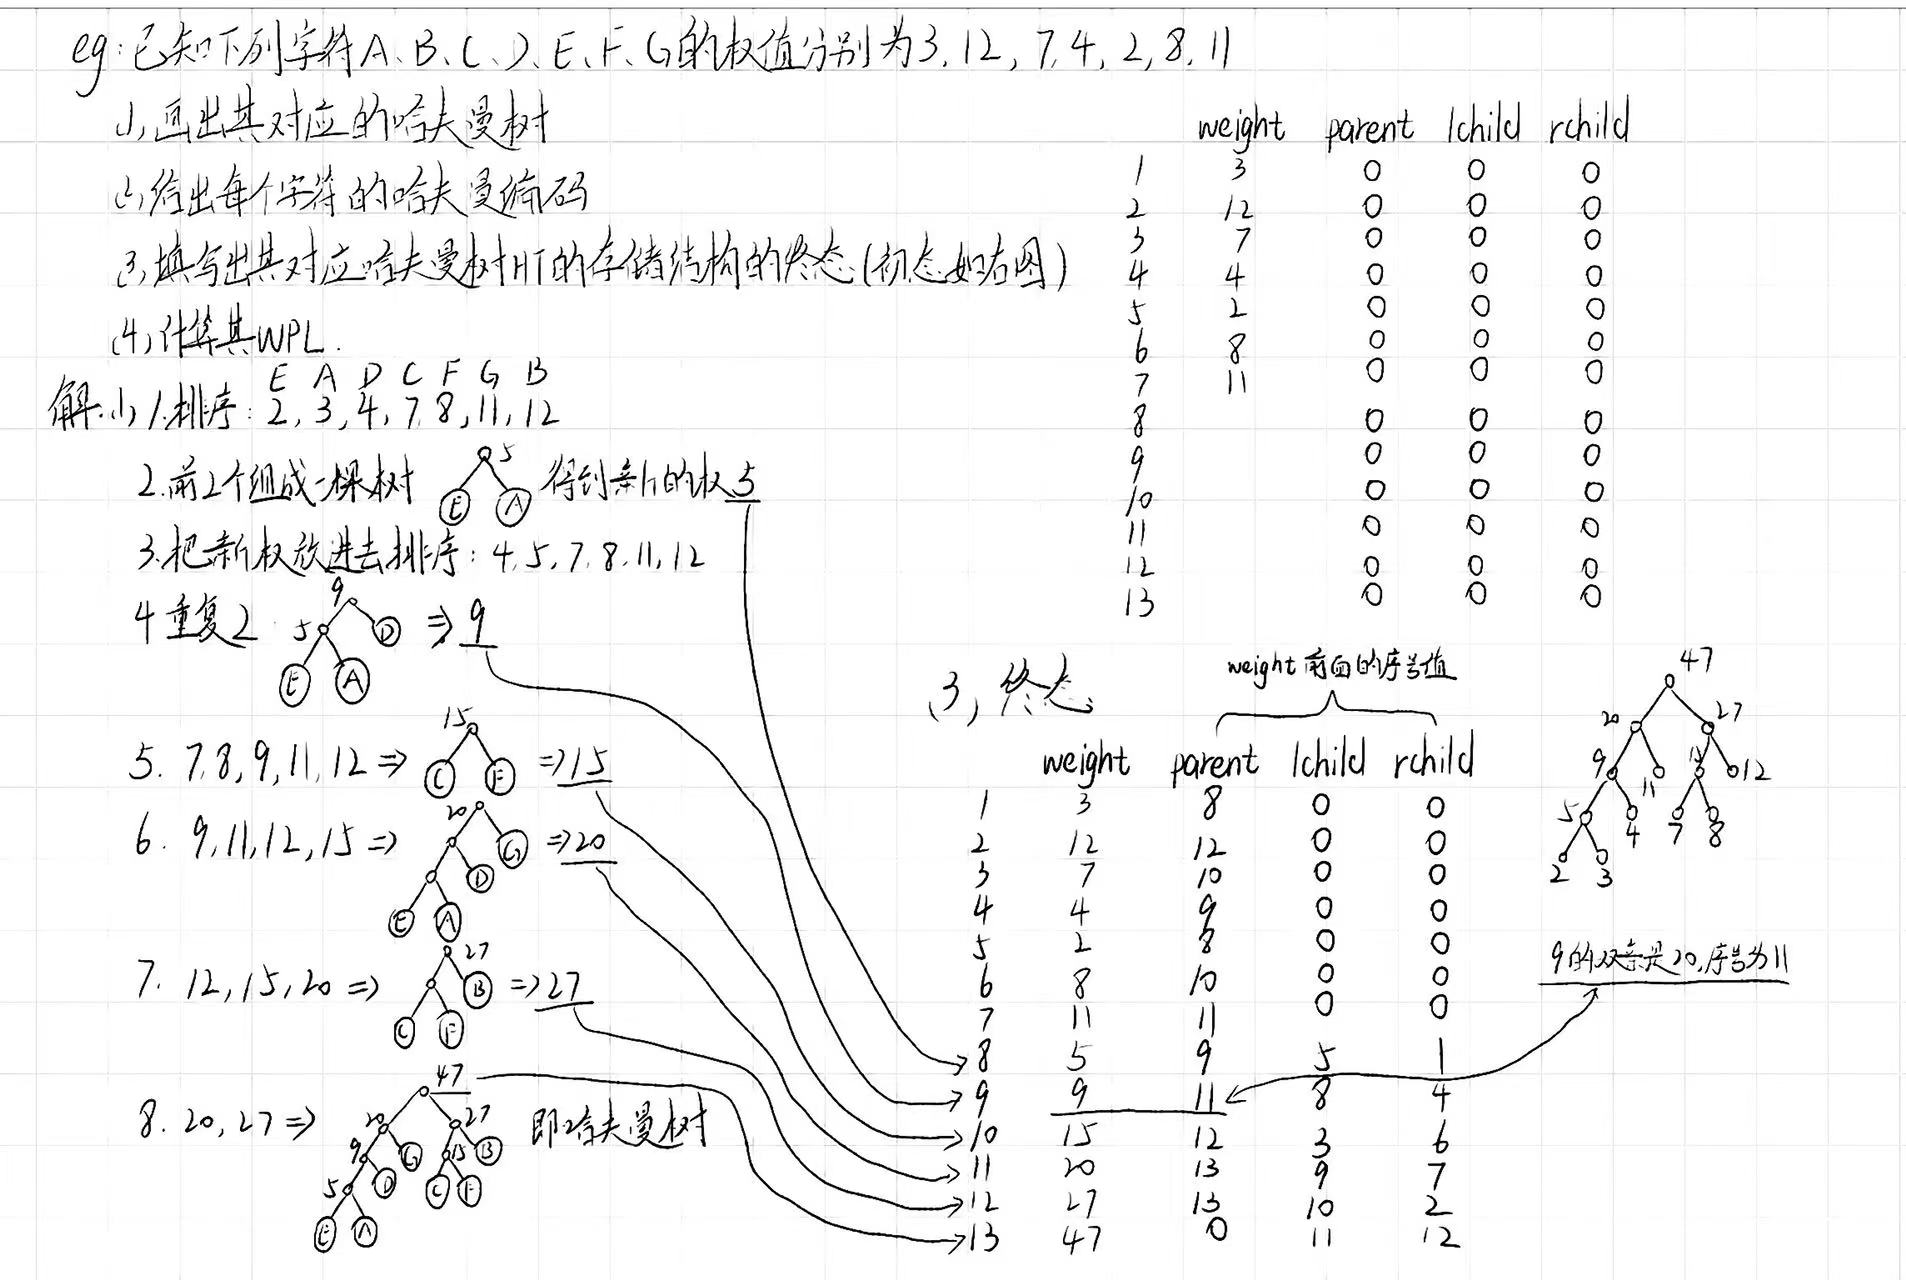 eg:已知下列字符A、B、C、D、E、F、G的权值分别为3,12,7,4,2,8,11
(1)画出其对应的哈夫曼树
(2)给出每个字符的哈夫曼编码
(3)填写出其对应哈夫曼树HT的存储结构的终态(初态如右图)
(4)计算其WPL.
weight parent lchild rchild
1 3 0 0 0
2 12 0 0 0
3 7 0 0 0
4 4 0 0 0
5 2 0 0 0
6 8 0 0 0
7 11 0 0 0
8 0 0 0
9 0 0 0
10 0 0 0
11 0 0 0
12 0 0 0
13 0 0 0
E A D C F G B
解:(1) 1.排序:2,3,4,7,8,11,12
2.前2个组成一棵树 5 E A 得到新的权5
3.把新权放进去排序:4,5,7,8,11,12
4重复2 9 5 D E A ⇒9
5. 7,8,9,11,12⇒ 15 C F ⇒15
6. 9,11,12,15⇒ 20 G D E A ⇒20
7. 12,15,20⇒ 27 B C F ⇒27
8. 20,27⇒ 47 20 27 9 G 15 B 5 D C F E A 即哈夫曼树
(3)终态
weight前面的序号值
weight parent lchild rchild
1 3 8 0 0
2 12 12 0 0
3 7 10 0 0
4 4 9 0 0
5 2 8 0 0
6 8 10 0 0
7 11 11 0 0
8 5 9 5 1
9 9 11 8 4
10 15 12 3 6
11 20 13 9 7
12 27 13 10 2
13 47 0 11 12
47
20 27
9 11 15 12
5 4 7 8
2 3
9的双亲是20,序号为11